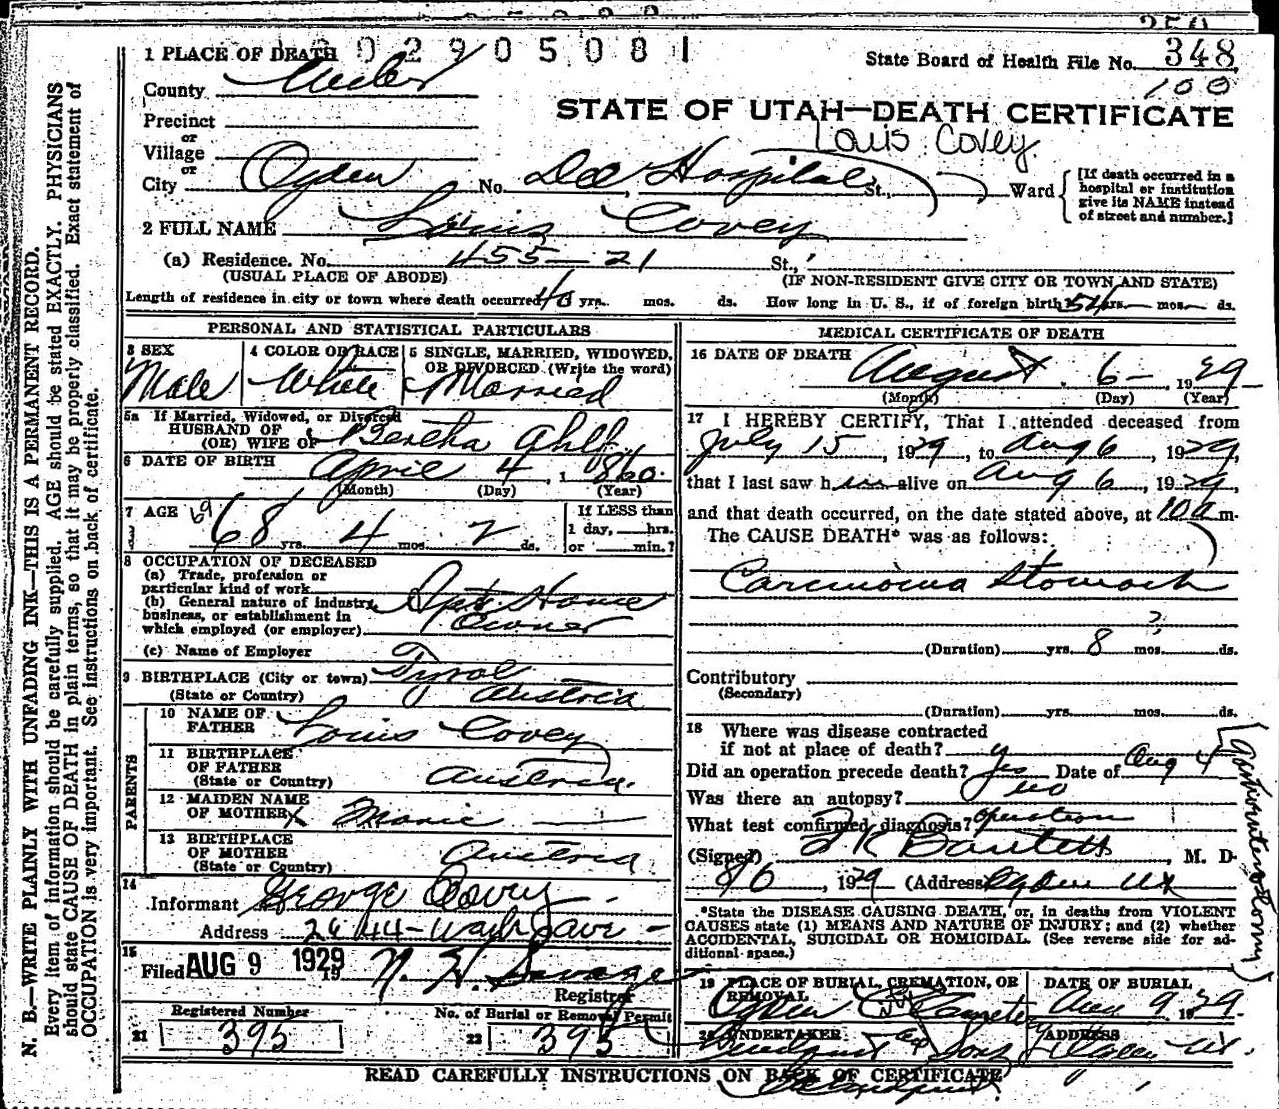 302905081
1 PLACE OF DEATH
State Board of Health File No. 348
100
County Weber
STATE OF UTAH—DEATH CERTIFICATE
Precinct
or
Louis Covey
Village
or
City Ogden No. Dee Hospital St., Ward
[If death occurred in a hospital or institution give its NAME instead of street and number.]
2 FULL NAME Louis Covey
(a) Residence. No. 455-21 St.,
(USUAL PLACE OF ABODE) (IF NON-RESIDENT GIVE CITY OR TOWN AND STATE)
Length of residence in city or town where death occurred 40 yrs. mos. ds. How long in U. S., if of foreign birth 54 yrs. mos. ds.
PERSONAL AND STATISTICAL PARTICULARS
3 SEX
Male
4 COLOR OR RACE
White
5 SINGLE, MARRIED, WIDOWED,
OR DIVORCED (Write the word)
Married
5a If Married, Widowed, or Divorced
HUSBAND OF
(OR) WIFE OF Bertha Ahlf
6 DATE OF BIRTH April 4, 1860
(Month) (Day) (Year)
7 AGE 69
68 yrs. 4 mos. 2 ds.
If LESS than
1 day, hrs.
or min.?
8 OCCUPATION OF DECEASED
(a) Trade, profession or
particular kind of work
(b) General nature of industry,
business, or establishment in
which employed (or employer)
Apt. House
Owner
(c) Name of Employer
9 BIRTHPLACE (City or town) Tyrol
(State or Country) Austria
PARENTS
10 NAME OF
FATHER Louis Covey
11 BIRTHPLACE
OF FATHER
(State or Country) Austria
12 MAIDEN NAME
OF MOTHER X Marie
13 BIRTHPLACE
OF MOTHER
(State or Country) Austria
14
Informant George Covey
Address 2644-Wash Ave
15
Filed AUG 9 1929 19 N. H. Savage
Registrar
Registered Number
21 395
No. of Burial or Removal Permit
22 395
MEDICAL CERTIFICATE OF DEATH
16 DATE OF DEATH August 6-, 1929
(Month) (Day) (Year)
17 I HEREBY CERTIFY, That I attended deceased from
July 15, 1929, to Aug 6, 1929,
that I last saw him alive on Aug 6, 1929,
and that death occurred, on the date stated above, at 10 a m.
The CAUSE DEATH* was as follows:
Carcinoma Stomach
?
(Duration) yrs. 8 mos. ds.
Contributory
(Secondary)
(Duration) yrs. mos. ds.
18 Where was disease contracted
if not at place of death? y
Did an operation precede death? yes Date of Aug 4
(Gastroenterostomy)
Was there an autopsy? no
What test confirmed diagnosis? operation
(Signed) Bartlett, M. D.
8/6, 1929 (Address) Ogden Ut
*State the DISEASE CAUSING DEATH, or, in deaths from VIOLENT
CAUSES state (1) MEANS AND NATURE OF INJURY; and (2) whether
ACCIDENTAL, SUICIDAL OR HOMICIDAL. (See reverse side for ad-
ditional space.)
19 PLACE OF BURIAL, CREMATION, OR
REMOVAL
Ogden City Cemetery
DATE OF BURIAL
Aug 9 1929
20 UNDERTAKER
Lindquist and Sons
ADDRESS
Ogden Ut.
READ CAREFULLY INSTRUCTIONS ON BACK OF CERTIFICATE
N. B.—WRITE PLAINLY WITH UNFADING INK—THIS IS A PERMANENT RECORD.
Every item of information should be carefully supplied. AGE should be stated EXACTLY. PHYSICIANS
should state CAUSE OF DEATH in plain terms, so that it may be properly classified. Exact statement of
OCCUPATION is very important. See instructions on back of certificate.